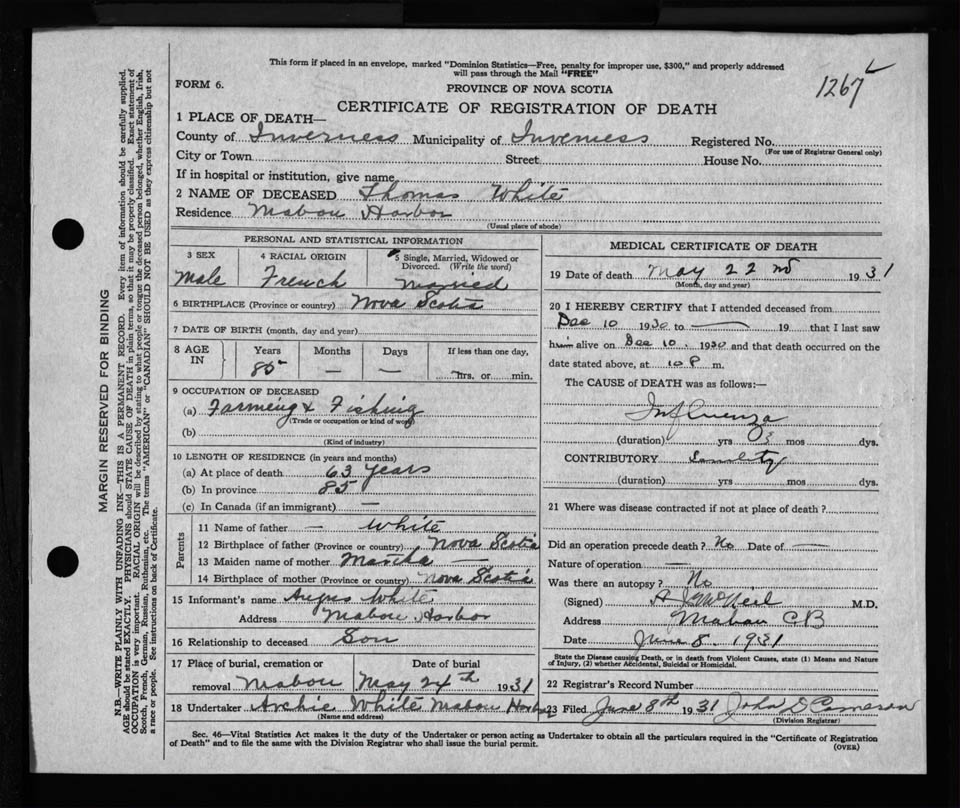 This form if placed in an envelope, marked "Dominion Statistics—Free, penalty for improper use, $300," and properly addressed
will pass through the Mail "FREE"
1267
FORM 6.
PROVINCE OF NOVA SCOTIA
CERTIFICATE OF REGISTRATION OF DEATH
1 PLACE OF DEATH—
County of Inverness Municipality of Inverness Registered No.
(For use of Registrar General only)
City or Town Street House No.
If in hospital or institution, give name
2 NAME OF DECEASED Thomas White
Residence Mabou Harbor
(Usual place of abode)
PERSONAL AND STATISTICAL INFORMATION
3 SEX 4 RACIAL ORIGIN 5 Single, Married, Widowed or
Divorced. (Write the word)
Male French Married
6 BIRTHPLACE (Province or country) Nova Scotia
7 DATE OF BIRTH (month, day and year)
8 AGE IN Years Months Days If less than one day,
85 — — hrs. or min.
9 OCCUPATION OF DECEASED
(a) Farmeng & Fishing
(Trade or occupation or kind of work)
(b)
(Kind of industry)
10 LENGTH OF RESIDENCE (in years and months)
(a) At place of death 63 years
(b) In province 85
(c) In Canada (if an immigrant) —
Parents
11 Name of father — White
12 Birthplace of father (Province or country) Nova Scotia
13 Maiden name of mother Martha —
14 Birthplace of mother (Province or country) Nova Scotia
15 Informant's name Angus White
Address Mabou Harbor
16 Relationship to deceased Son
17 Place of burial, cremation or Date of burial
removal Mabou May 24th 1931
18 Undertaker Archie White Mabou Harbor
(Name and address)
MEDICAL CERTIFICATE OF DEATH
19 Date of death May 22nd 1931
(Month, day and year)
20 I HEREBY CERTIFY that I attended deceased from
Dec 10 1930 to — 19 that I last saw
him alive on Dec 10. 1930 and that death occurred on the
date stated above, at 10 P m.
The CAUSE of DEATH was as follows:—
Influenza
(duration) yrs mos dys.
CONTRIBUTORY
(duration) yrs mos dys.
21 Where was disease contracted if not at place of death?
Did an operation precede death? No Date of —
Nature of operation —
Was there an autopsy? No
(Signed) McNeil M.D.
Address Mabou CB
Date June 8. 1931
State the Disease causing Death, or in death from Violent Causes, state (1) Means and Nature
of Injury, (2) whether Accidental, Suicidal or Homicidal.
22 Registrar's Record Number
23 Filed June 8th 1931 John D Cameron
(Division Registrar)
Sec. 46—Vital Statistics Act makes it the duty of the Undertaker or person acting as Undertaker to obtain all the particulars required in the "Certificate of Registration
of Death" and to file the same with the Division Registrar who shall issue the burial permit.
(OVER)
MARGIN RESERVED FOR BINDING
N.B.—WRITE PLAINLY WITH UNFADING INK—THIS IS A PERMANENT RECORD. Every item of information should be carefully supplied.
AGE should be stated EXACTLY. PHYSICIANS should STATE CAUSE OF DEATH in plain terms, so that it may be properly classified. Exact statement of
OCCUPATION is very important. RACIAL ORIGIN will be described by stating to what people or tongue the deceased person belonged, whether English, Irish,
Scotch, French, German, Russian, Ruthenian, etc. The terms "AMERICAN" or "CANADIAN" SHOULD NOT BE USED as they express citizenship but not
a race or people. See instructions on back of Certificate.